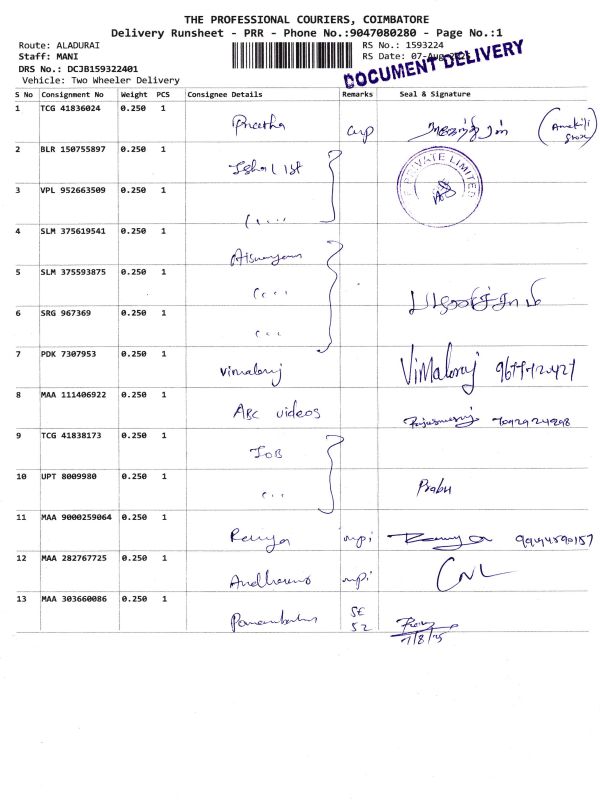 THE PROFESSIONAL COURIERS, COIMBATORE
Delivery Runsheet - PRR - Phone No.:9047080280 - Page No.:1
Route: ALADURAI
RS No.: 1593224
Staff: MANI
RS Date: 07-Aug-2025
DOCUMENT DELIVERY
DRS No.: DCJB159322401
Vehicle: Two Wheeler Delivery
S No Consignment No Weight PCS Consignee Details Remarks Seal & Signature
1 TCG 41836024 0.250 1 Preetha
2 BLR 150755897 0.250 1
PRIVATE LIMITED
3 VPL 952663509 0.250 1
4 SLM 375619541 0.250 1
5 SLM 375593875 0.250 1
6 SRG 967369 0.250 1
7 PDK 7307953 0.250 1 Vimalraj Vimalraj
8 MAA 111406922 0.250 1 ABC videos
9 TCG 41838173 0.250 1 IOB
10 UPT 8009980 0.250 1 Prabu
11 MAA 9000259064 0.250 1 Ramya Ramya
12 MAA 282767725 0.250 1 CNL
13 MAA 303660086 0.250 1 SE
52
7/8/25